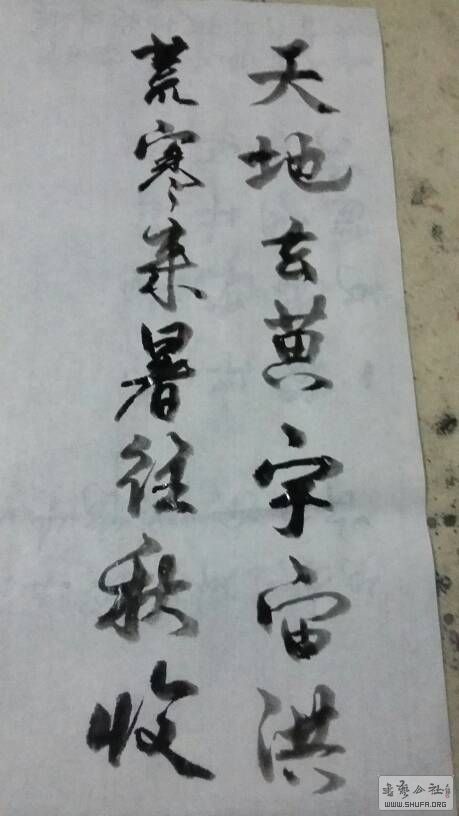 天地玄黄宇宙洪
荒寒来暑往秋收
书艺公社
WWW.SHUFA.ORG